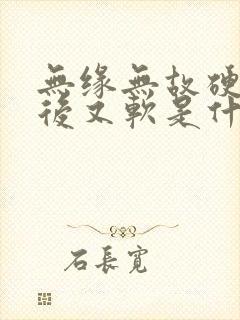 無缘無故硬
後又軟是什
石長寬